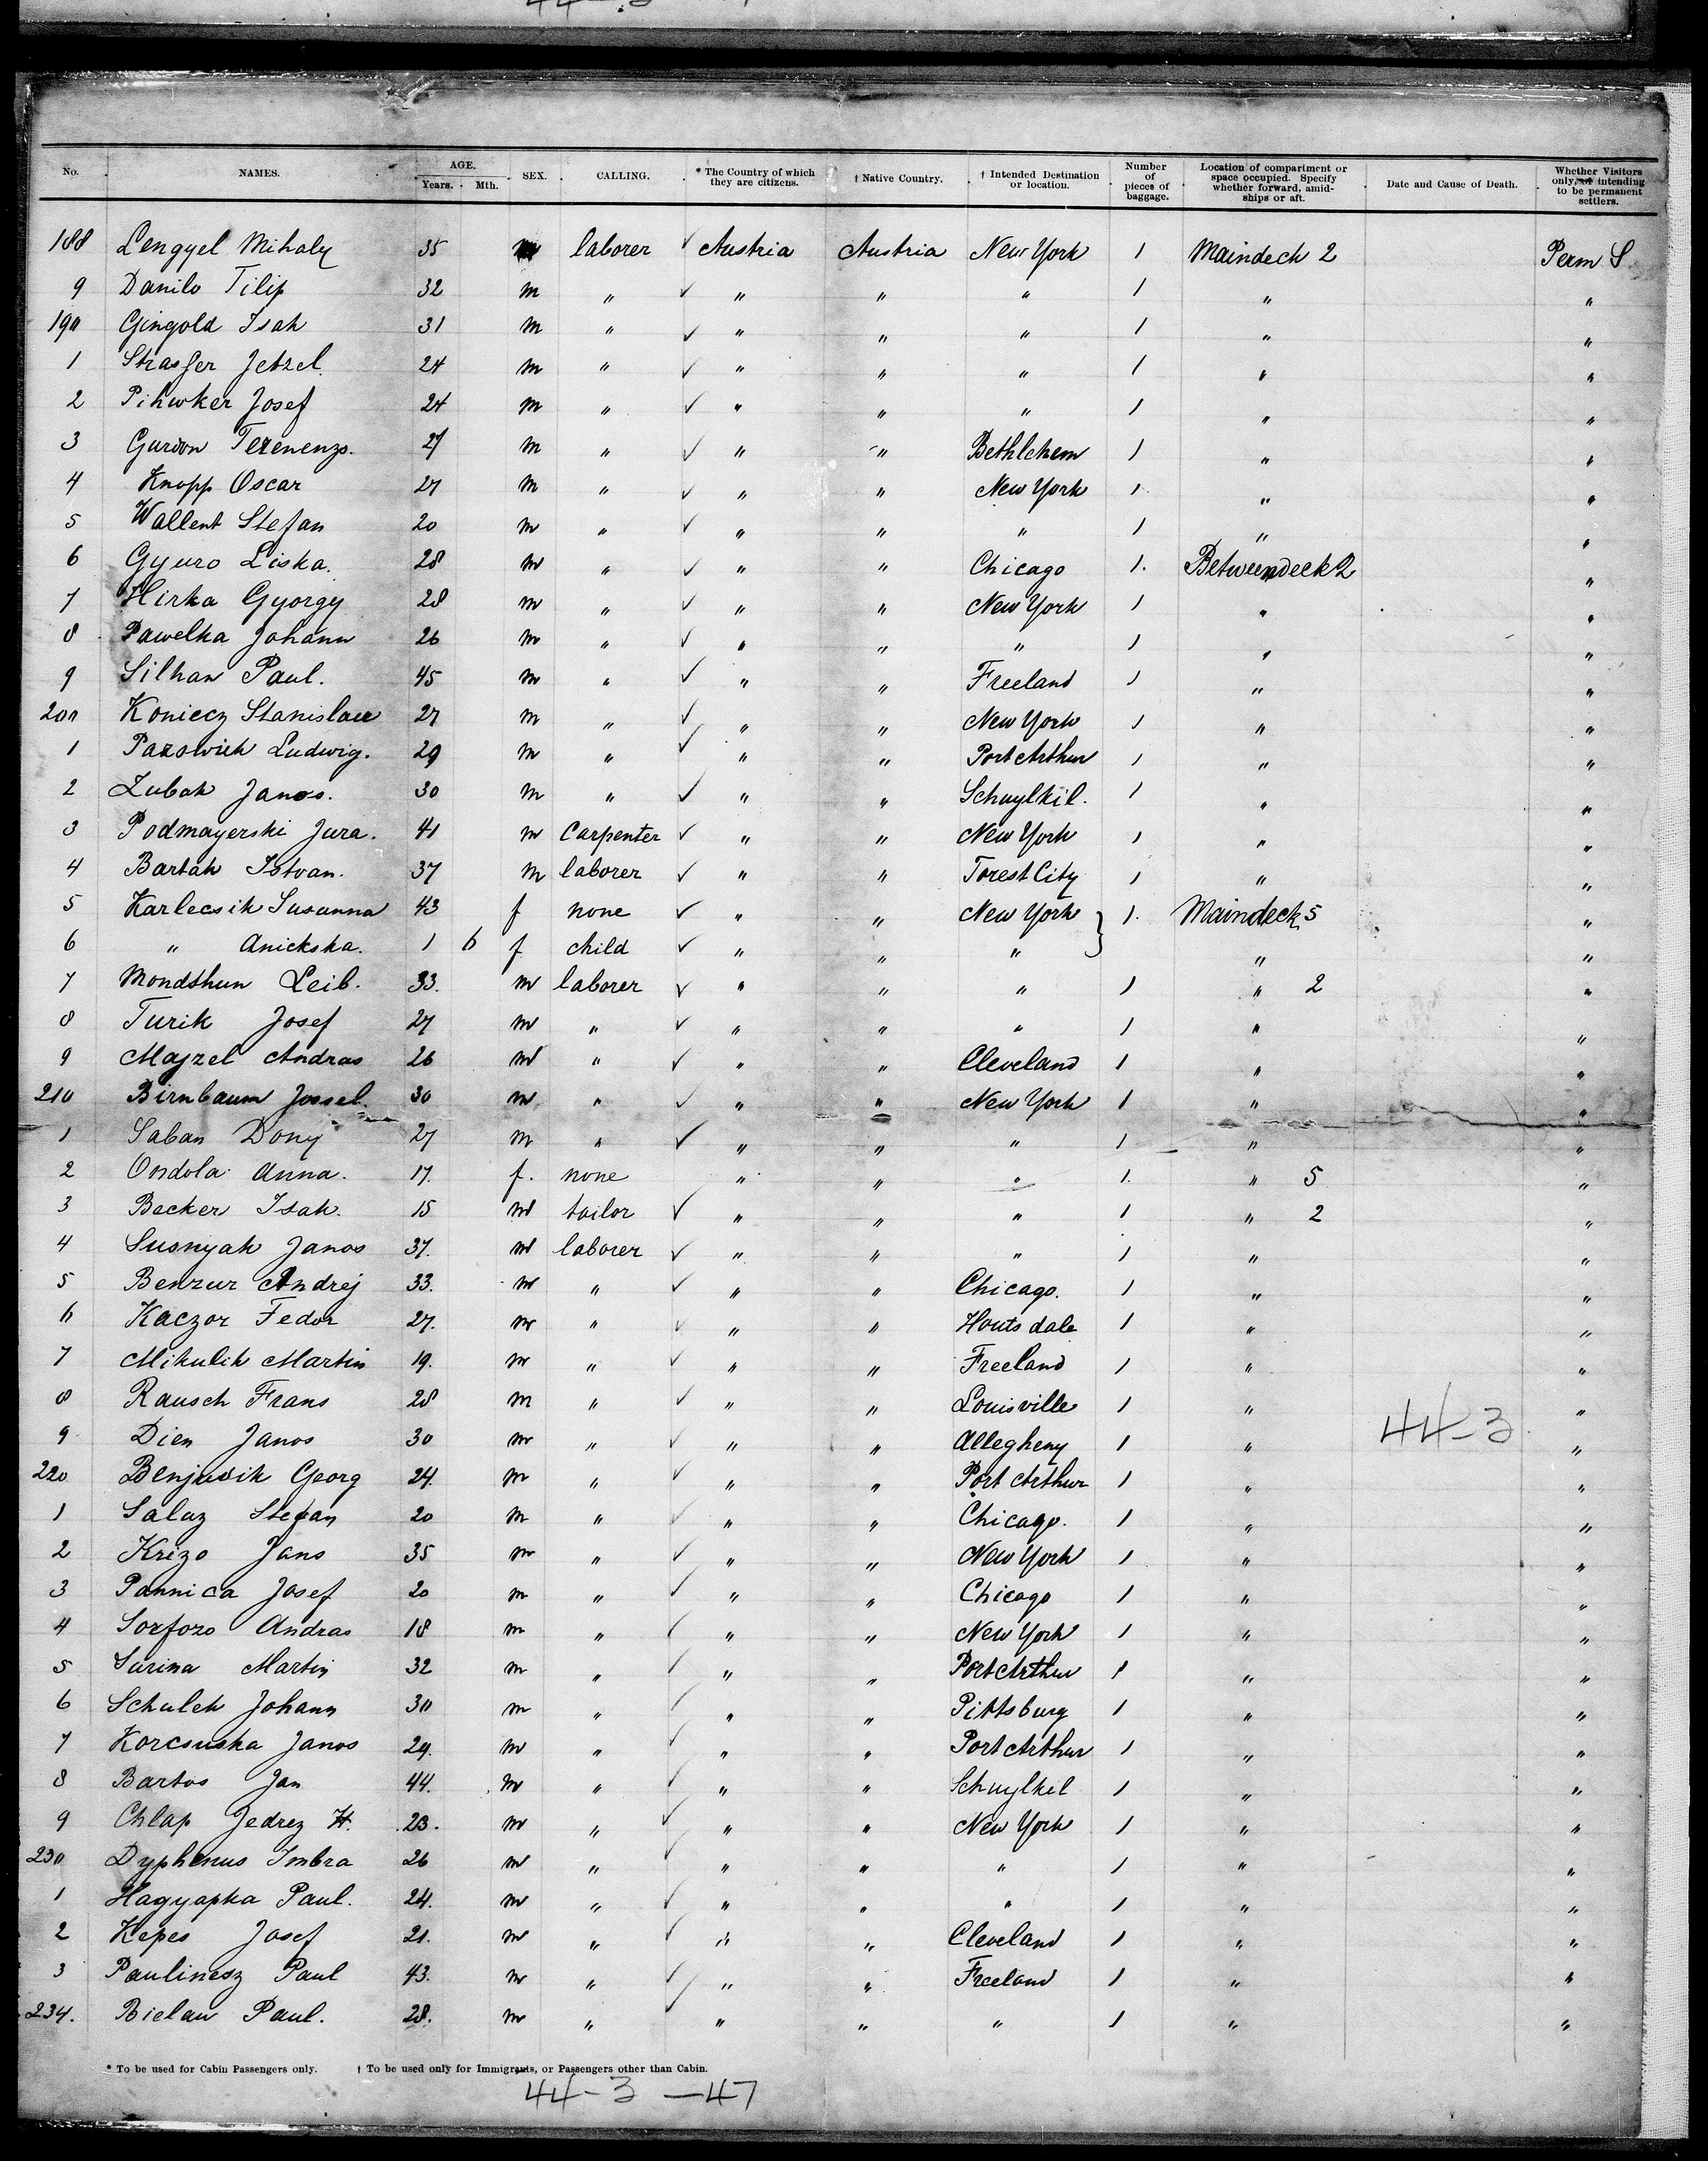 44-3
No. NAMES. AGE. Years. Mth. SEX. CALLING. * The Country of which they are citizens. † Native Country. † Intended Destination or location. Number of pieces of baggage. Location of compartment or space occupied. Specify whether forward, amidships or aft. Date and Cause of Death. Whether Visitors only, or intending to be permanent settlers.
188 Lengyel Mihaly 35 m laborer ✓ Austria Austria New York 1 Maindeck 2 Perm S.
9 Danilo Filip 32 m " ✓ " " " 1 " "
190 Gingold Isak 31 m " ✓ " " " 1 " "
1 Strasser Jetzel 24 m " ✓ " " " 1 " "
2 Pihwker Josef 24 m " ✓ " " " 1 " "
3 Gurson Terenenzo. 27 m " ✓ " " Bethlehem 1 " "
4 Knopp Oscar 27 m " ✓ " " New York 1 " "
5 Wallent Stefan 20 m " ✓ " " " 1 " "
6 Gyuro Liska. 28 m " ✓ " " Chicago 1. Betweendeck 2 "
7 Hirka Gyorgy 28 m " ✓ " " New York 1 " "
8 Pawelka Johann 26 m " ✓ " " " 1 " "
9 Silhan Paul. 45 m " ✓ " " Freeland 1 " "
200 Koniecz Stanislau 27 m " ✓ " " New York 1 " "
1 Pazowich Ludwig. 29 m " ✓ " " Port Arthur 1 " "
2 Zubak Janos. 30 m " ✓ " " Schuylkil. 1 " "
3 Podmayerski Jura. 41 m Carpenter ✓ " " New York 1 " "
4 Bartak Istvan. 37 m laborer ✓ " " Forest City 1 " "
5 Karlecsik Susanna 43 f none ✓ " " New York } 1. Maindeck 5 "
6 " Anickska. 1 6 f child ✓ " " " " "
7 Mondshun Leib. 33. m laborer ✓ " " " 1 " 2 "
8 Turik Josef 27 m " ✓ " " " 1 " "
9 Majzel Andras 26 m " ✓ " " Cleveland 1 " "
210 Birnbaum Jossel. 30 m " ✓ " " New York 1 " "
1 Saban Dony 27 m " ✓ " " " 1 " "
2 Ondola Anna. 17. f. none " " " 1. " 5 "
3 Becker Isak. 15 m tailor ✓ " " " 1 " 2 "
4 Susnyak Janos 37. m laborer ✓ " " " 1 " "
5 Benzur Andrej 33. m " ✓ " " Chicago. 1 " "
6 Kaczor Fedor 27. m " ✓ " " Houtsdale 1 " "
7 Mikulik Martin 19. m " ✓ " " Freeland 1 " "
8 Rausch Frans 28 m " ✓ " " Louisville 1 " "
9 Dien Janos 30 m " ✓ " " Allegheny 1 " 44-3 "
220 Benjusik Georg 24. m " ✓ " " Port Arthur 1 " "
1 Salaz Stefan 20 m " ✓ " " Chicago. 1 " "
2 Krizo Jano 35 m " ✓ " " New York 1 " "
3 Pannica Josef 20 m " ✓ " " Chicago 1 " "
4 Sorfozo Andras 18 m " ✓ " " New York 1 " "
5 Surina Martin 32 m " ✓ " " Port Arthur 1 " "
6 Schulek Johann 30 m " ✓ " " Pittsburg 1 " "
7 Korcsuska Janos 29. m " ✓ " " Port Arthur 1 " "
8 Bartos Jan 44. m " ✓ " " Schuylkel 1 " "
9 Chlap Jedrez H. 23. m " ✓ " " New York 1 " "
230 Dyphenus Imbra 26 m " ✓ " " " 1 " "
1 Hagyapka Paul. 24. m " ✓ " " " 1 " "
2 Kepes Josef 21. m " ✓ " " Cleveland 1 " "
3 Paulinesz Paul 43. m " ✓ " " Freeland 1 " "
234. Bielau Paul. 28. m " ✓ " " " 1 " "
* To be used for Cabin Passengers only. † To be used only for Immigrants, or Passengers other than Cabin.
44-3 — 47